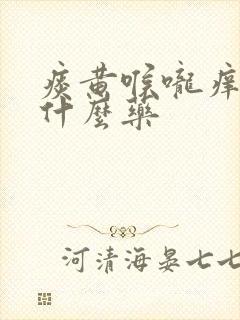 痰黄喉嚨痒
什麼藥
河清海晏七七